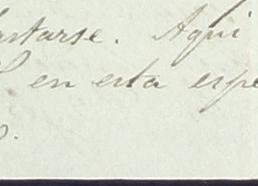 artarse. Aqui
en esta espe
o.